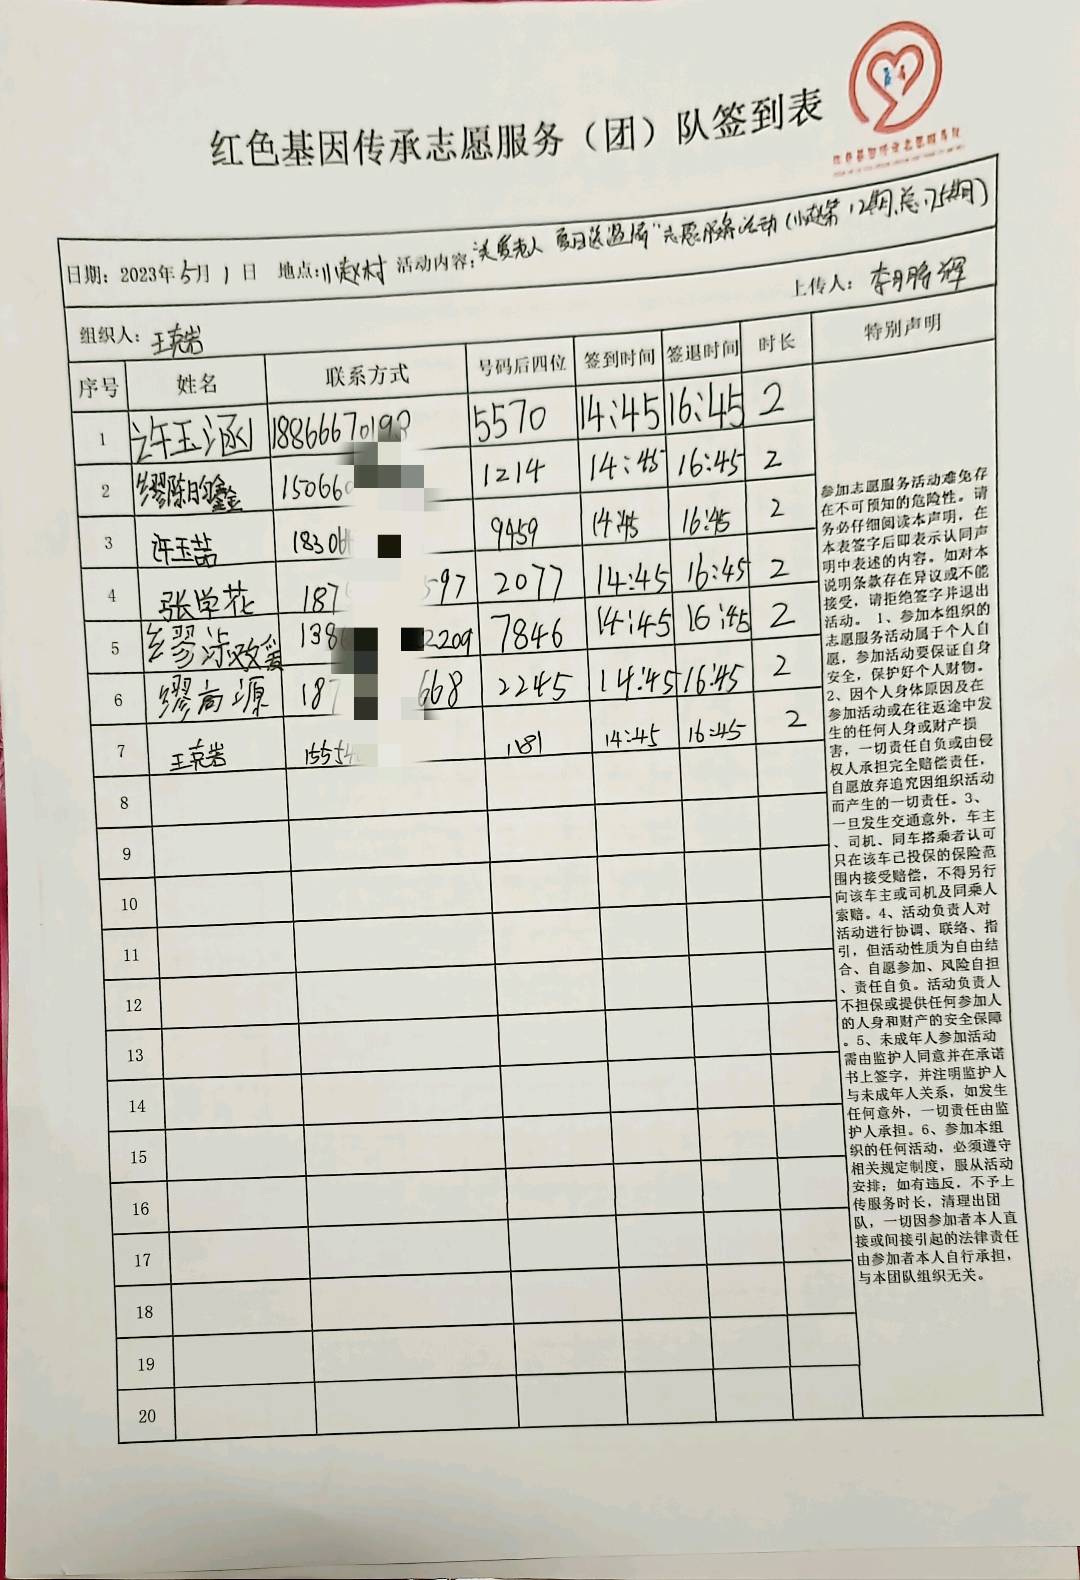 红色基因传承志愿服务（团）队签到表
日期：2023年5月1日 地点：小赵村 活动内容：关爱老人 夏日送温情"志愿服务活动(小赵第12期,总175期)
组织人：王克岩 上传人：李月腾辉
序号 姓名 联系方式 号码后四位 签到时间 签退时间 时长 特别声明
1 许玉涵 18866670198 5570 14:45 16:45 2
2 缪陈昀鑫 150660 1214 14:45 16:45 2
3 许玉喆 18306 9459 14:45 16:45 2
4 张学花 187 597 2077 14:45 16:45 2
5 138 2209 7846 14:45 16:45 2
6 缪高源 187 668 2245 14:45 16:45 2
7 王克岩 15554 1181 14:45 16:45 2
8
9
10
11
12
13
14
15
16
17
18
19
20
参加志愿服务活动难免存
在不可预知的危险性。请
务必仔细阅读本声明，在
本表签字后即表示认同声
明中表述的内容。如对本
说明条款存在异议或不能
接受，请拒绝签字并退出
活动。 1、参加本组织的
志愿服务活动属于个人自
愿，参加活动要保证自身
安全，保护好个人财物。
2、因个人身体原因及在
参加活动或在往返途中发
生的任何人身或财产损
害，一切责任自负或由侵
权人承担完全赔偿责任，
自愿放弃追究因组织活动
而产生的一切责任。3、
一旦发生交通意外，车主
、司机、同车搭乘者认可
只在该车已投保的保险范
围内接受赔偿，不得另行
向该车主或司机及同乘人
索赔。4、活动负责人对
活动进行协调、联络、指
引，但活动性质为自由结
合、自愿参加、风险自担
、责任自负。活动负责人
不担保或提供任何参加人
的人身和财产的安全保障
。5、未成年人参加活动
需由监护人同意并在承诺
书上签字，并注明监护人
与未成年人关系，如发生
任何意外，一切责任由监
护人承担。6、参加本组
织的任何活动，必须遵守
相关规定制度，服从活动
安排；如有违反，不予上
传服务时长，清理出团
队，一切因参加者本人直
接或间接引起的法律责任
由参加者本人自行承担，
与本团队组织无关。